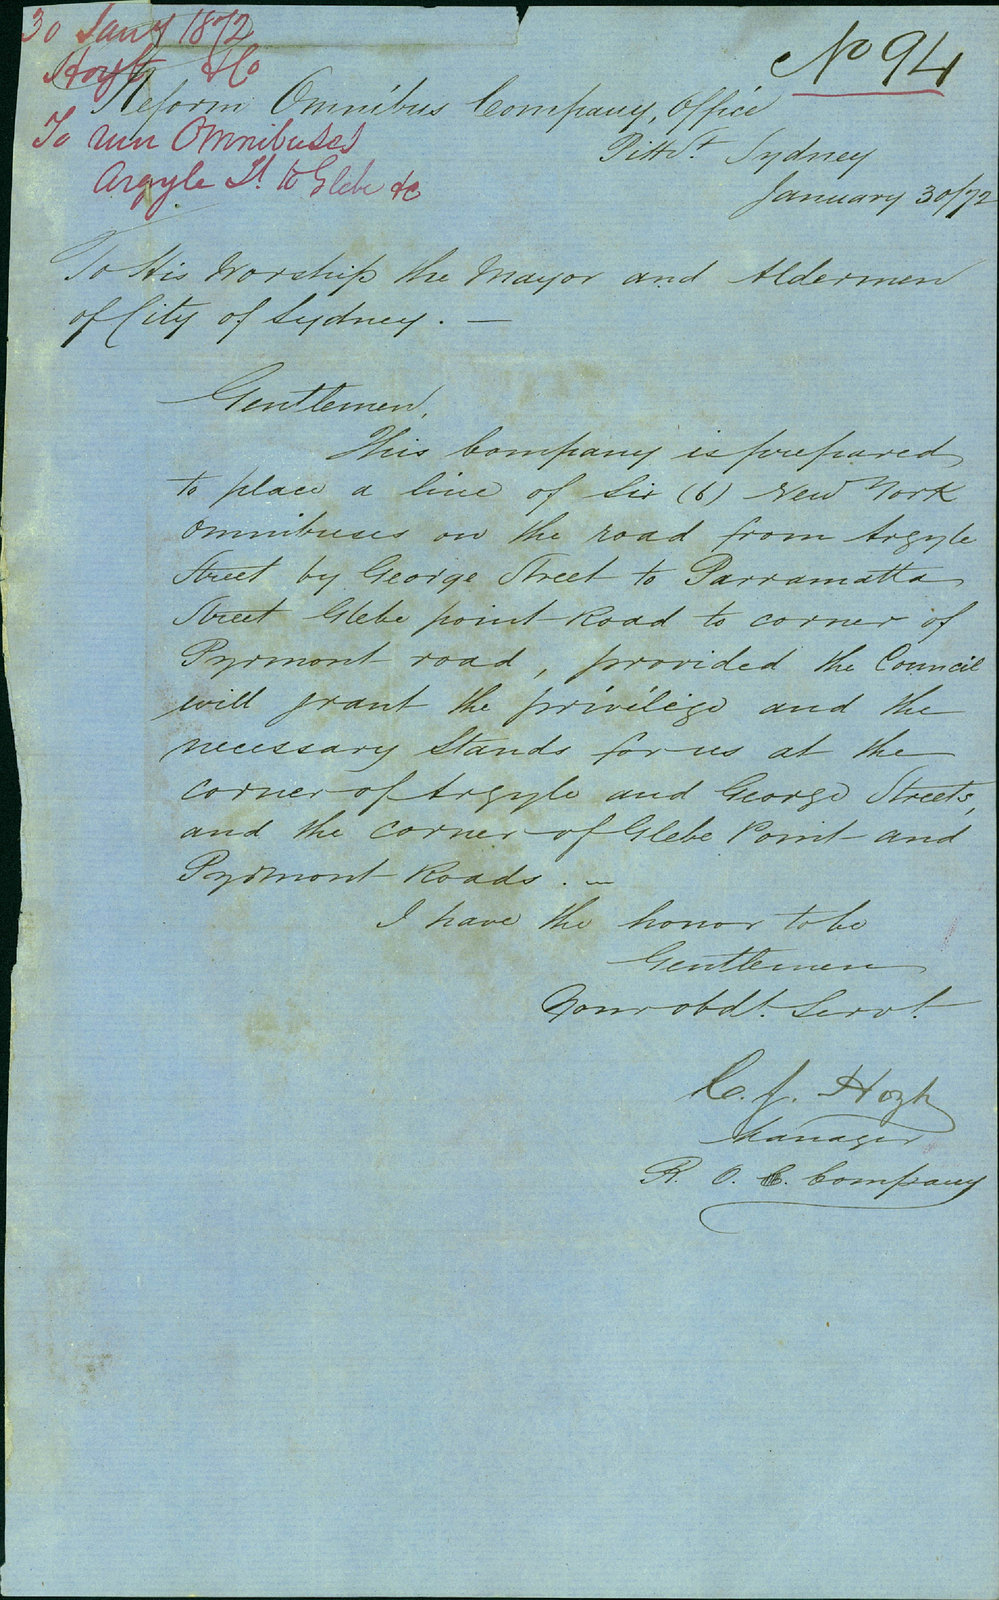 30 Jany 1872
Hoyt &Co
To run Omnibuses
Argyle St to Glebe &c
No 94
Reform Omnibus Company, Office
Pitt St Sydney
January 30/72
To His Worship the Mayor and Aldermen
of City of Sydney. —
Gentlemen,
This Company is prepared
to place a line of six (6) New York
omnibuses on the road from Argyle
Street by George Street to Parramatta
Street Glebe point Road to corner of
Pyrmont road, provided the Council
will grant the privilige and the
necessary Stands for us at the
corner of Argyle and George Streets,
and the corner of Glebe Point and
Pyrmont Roads. —
I have the honor to be
Gentlemen
Your obdt. Servt.
C. J. Hoyt
Manager
R. O. Company